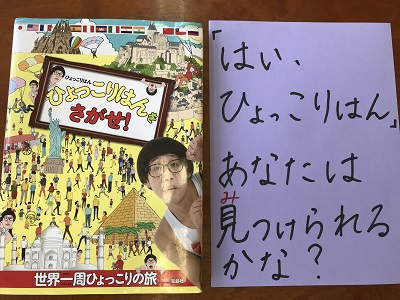 ひょっこりはん
ひょっこりはんを
さがせ!
世界一周ひょっこりの旅
宝島社
「はい、
ひょっこりはん」
あなたは
み
見つけられる
かな?